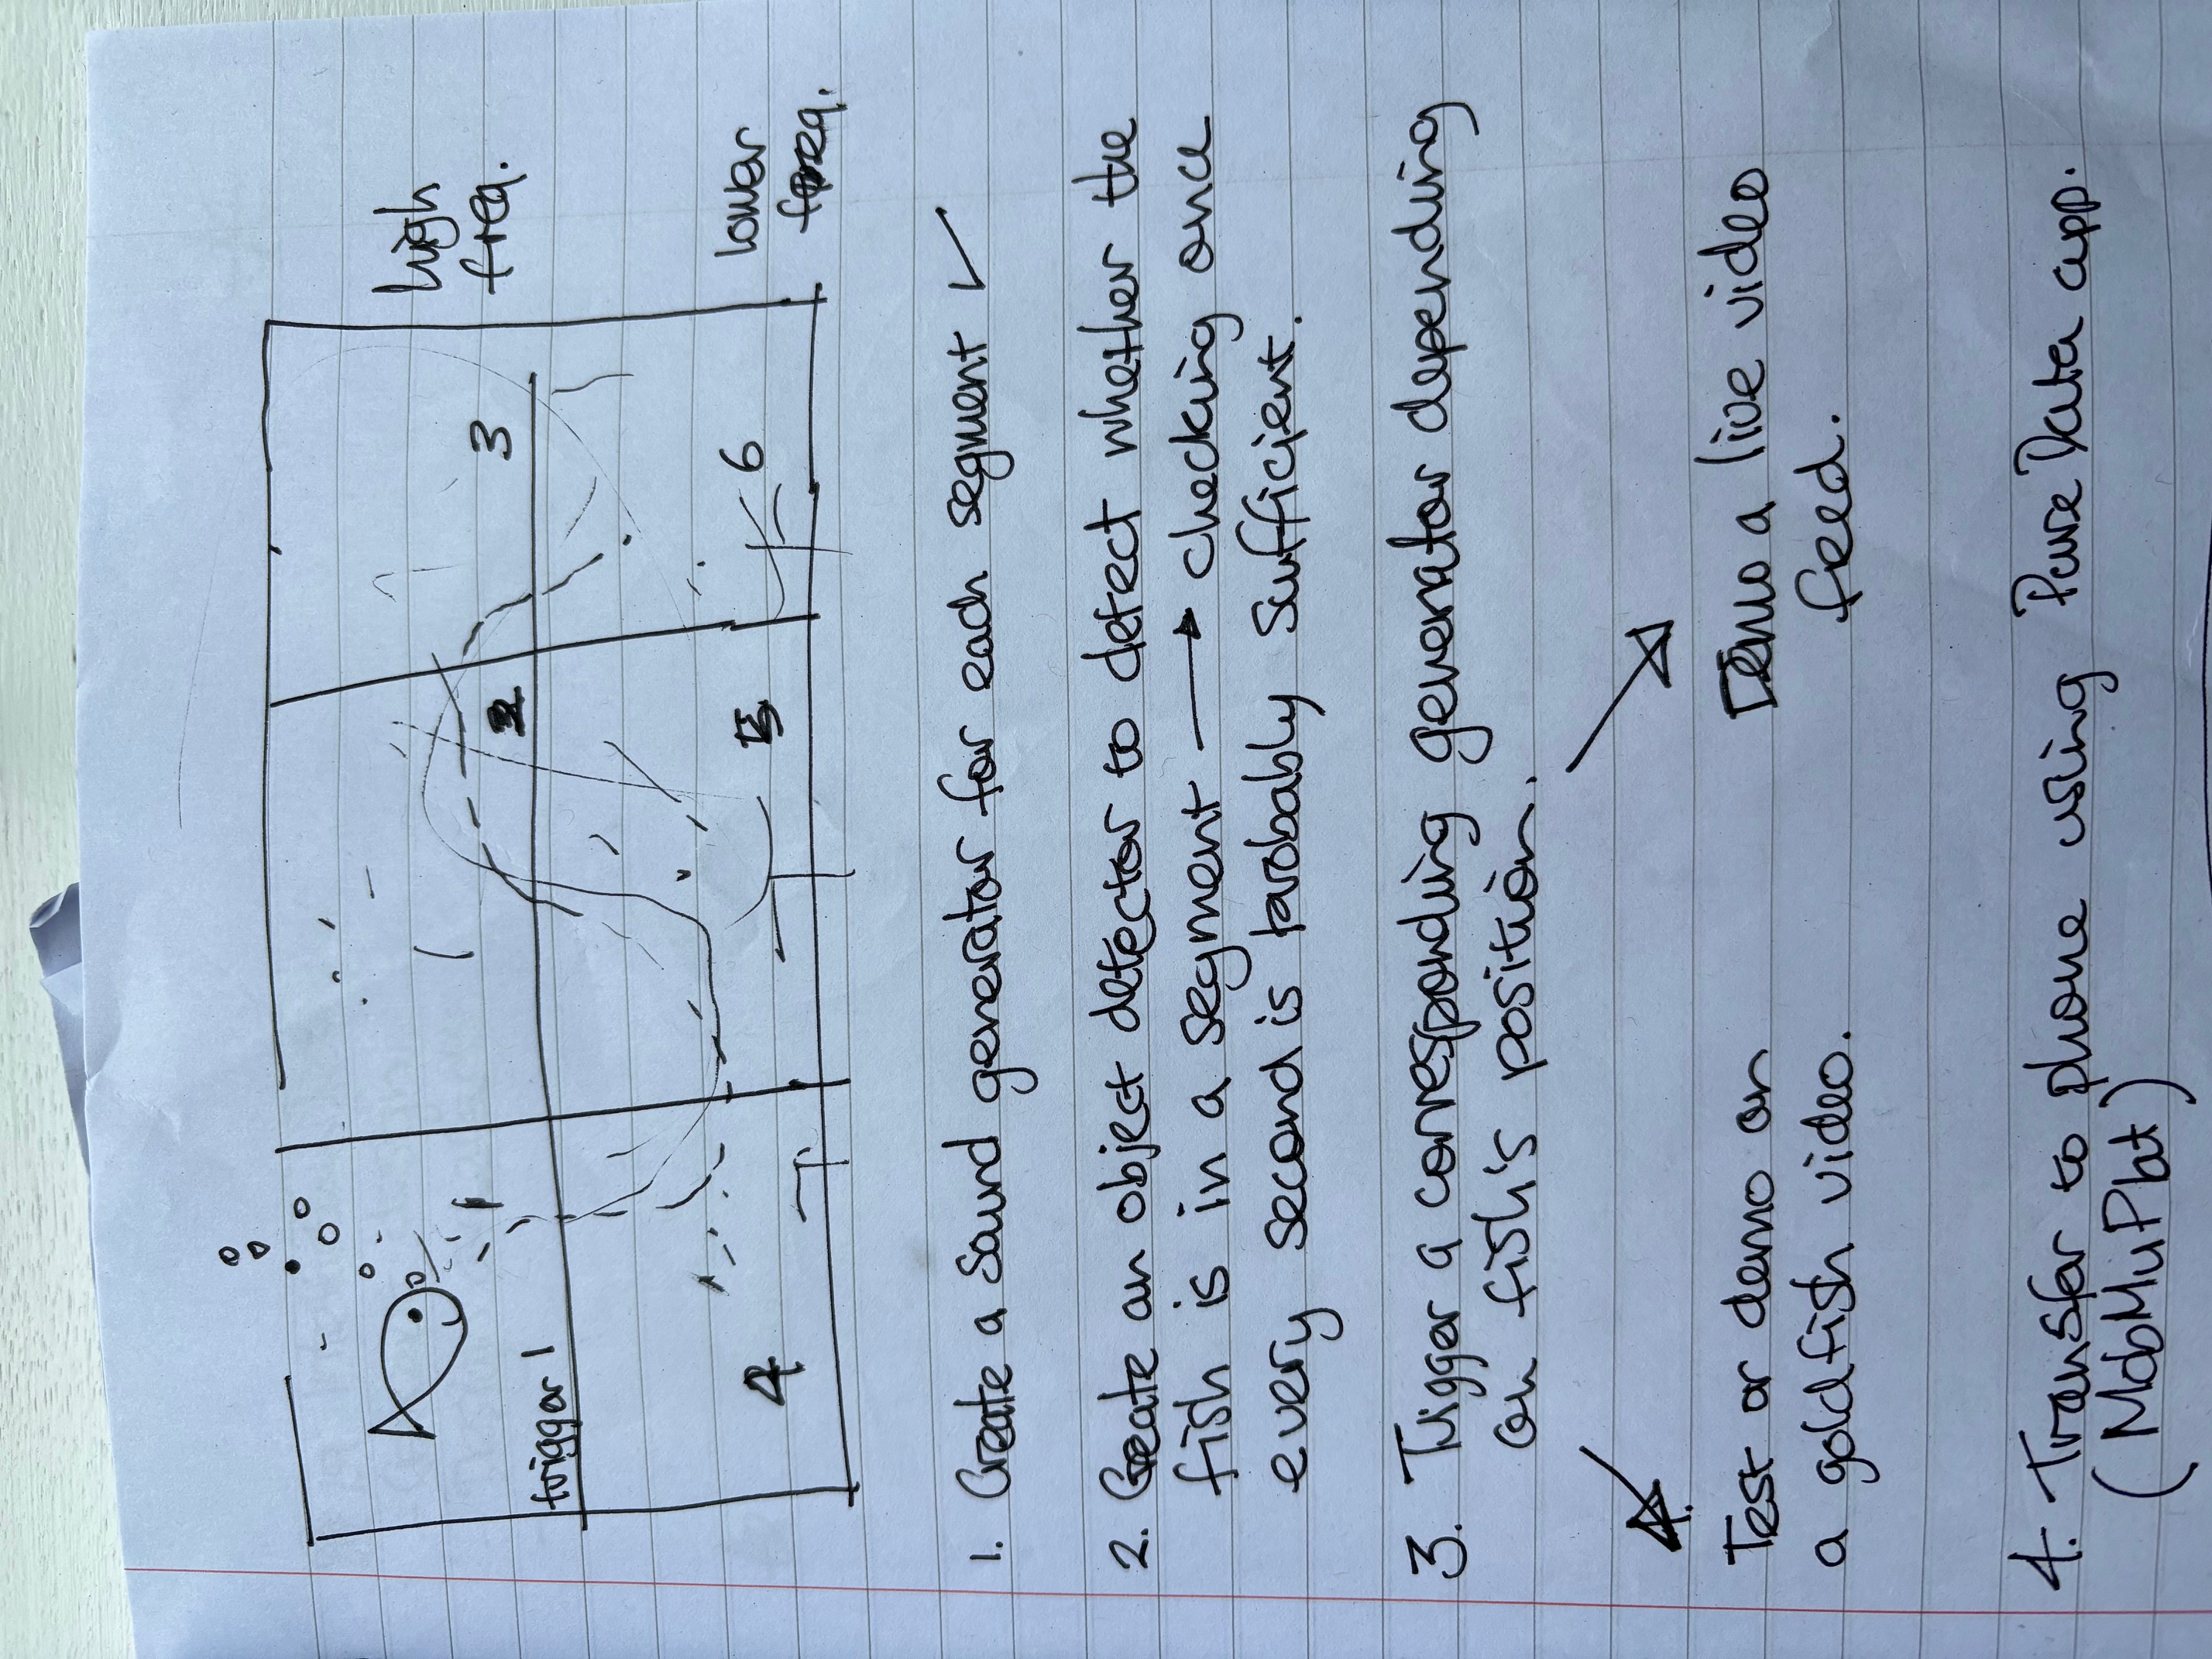 high
freq.
2
3
trigger 1
lower
freq.
4
5
6
1. Create a Sound generator for each segment ✓
2. Create an object detector to detect whether the
fish is in a segment → checking once
every second is probably sufficient.
3. Trigger a corresponding generator depending
on fish's position.
Test or demo on
a goldfish video.
Demo a live video
feed.
4. Transfer to phone using Pure Data app.
(MobMuPlat)